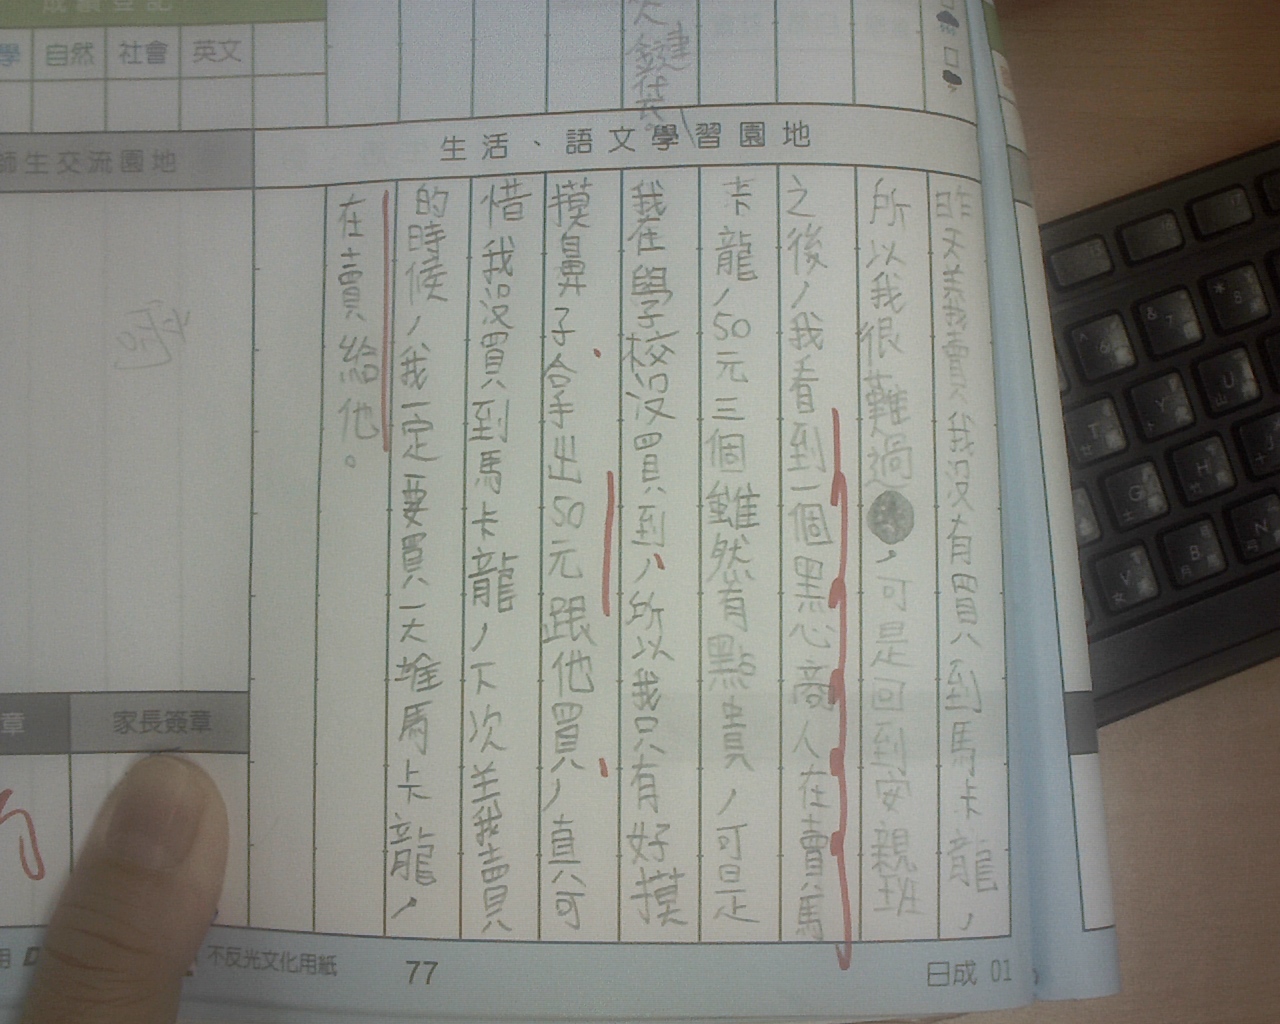 成績登記
學 自然 社會 英文
師生交流園地
天鍵代。
生活、語文學習園地
昨天義賣我沒有買到馬卡龍，
所以我很難過，可是回到安親班
之後，我看到一個黑心商人在賣馬
卡龍，50元三個雖然有點貴，可是
我在學校沒買到，所以我只有好摸
摸鼻子拿出50元跟他買，真可
惜我沒買到馬卡龍，下次義賣
的時候，我一定要買一大堆馬卡龍，
在賣給他。
章
家長簽章
用
不反光文化用紙
77
日成 01